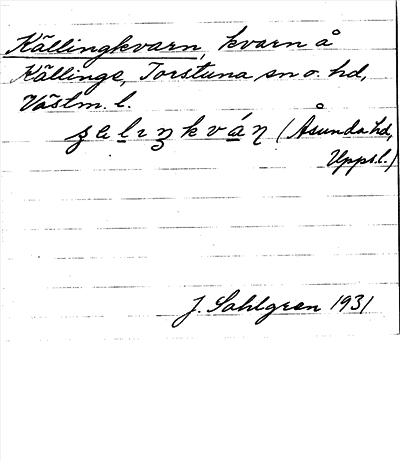 Källingkvarn, kvarn å
Källinge, Torstuna sn o. hd,
Västm. l.
(Åsunda hd,
Upps.l.)
J. Sahlgren 1931